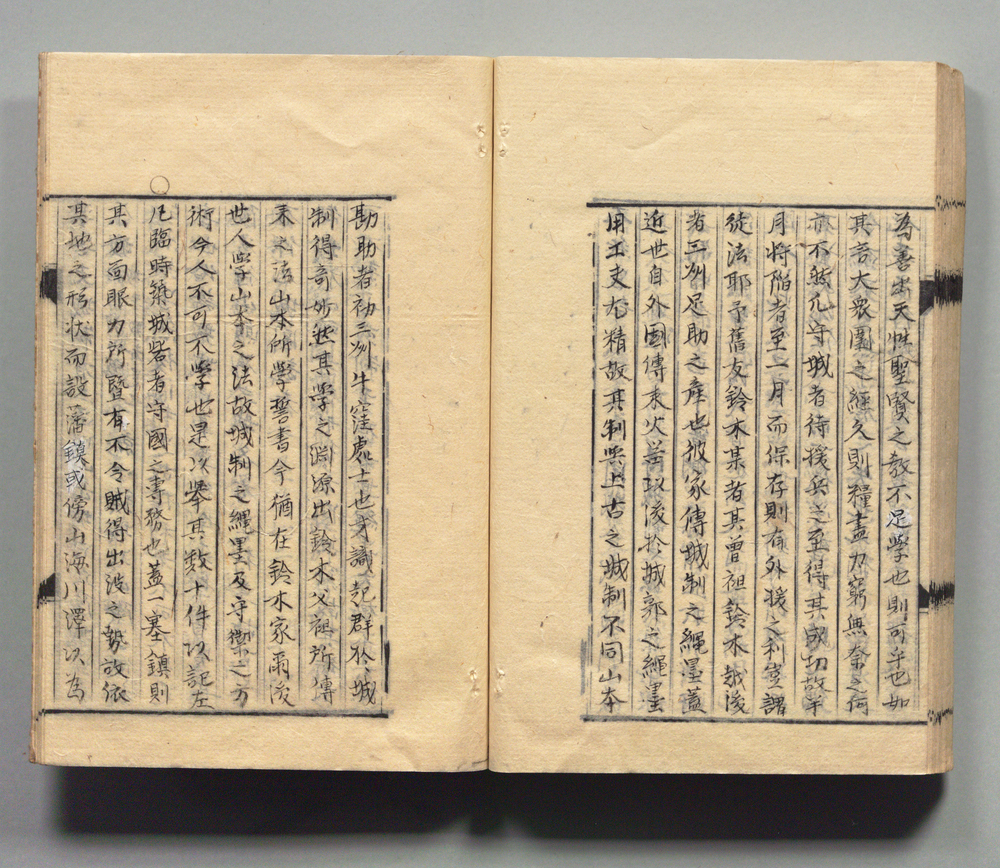 為善出天性聖賢之教不足學也則可乎也如
其言大衆圍之經久則糧盡力窮無奈之何
亦不然凡守城者待援兵之至得其成功故半
月將陷者至二月而保存則有外援之利豈謂
徒法耶予舊友鈴木某者其曾祖鈴木越後
者三州足助之産也彼家傳城制之繩墨蓋
近世自外國傳来火器以後於城郭之繩墨
用工夫尤精故其制與上古之城制不同山本
勘助者初三州牛窪處士也才識起群於城
制得奇妙然其學之淵源出鈴木父祖所傳
来之法山本所學誓書今猶在鈴木家爾後
世人學山本之法故城制之繩墨及守禦之方
術今人不可不學也是以舉其数十件以記左
凡臨時築城砦者守國之專務也蓋一塞鎮則
其方面眼力所暨有不令賊得出没之勢故依
其地之形状而設藩鎮或傍山海川澤以為